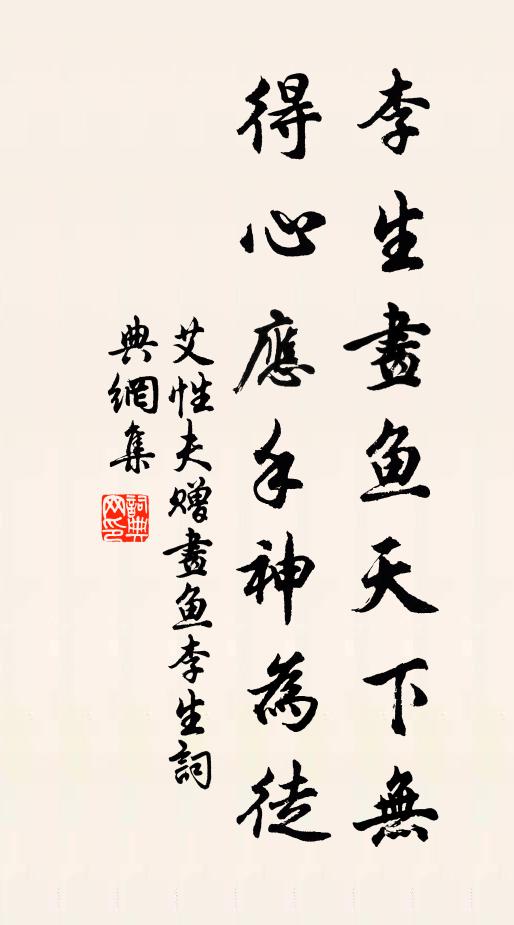 李生畫鱼天下無
得心應手神為徒
艾性夫赠畫鱼李生詞
典網集
詞典网印